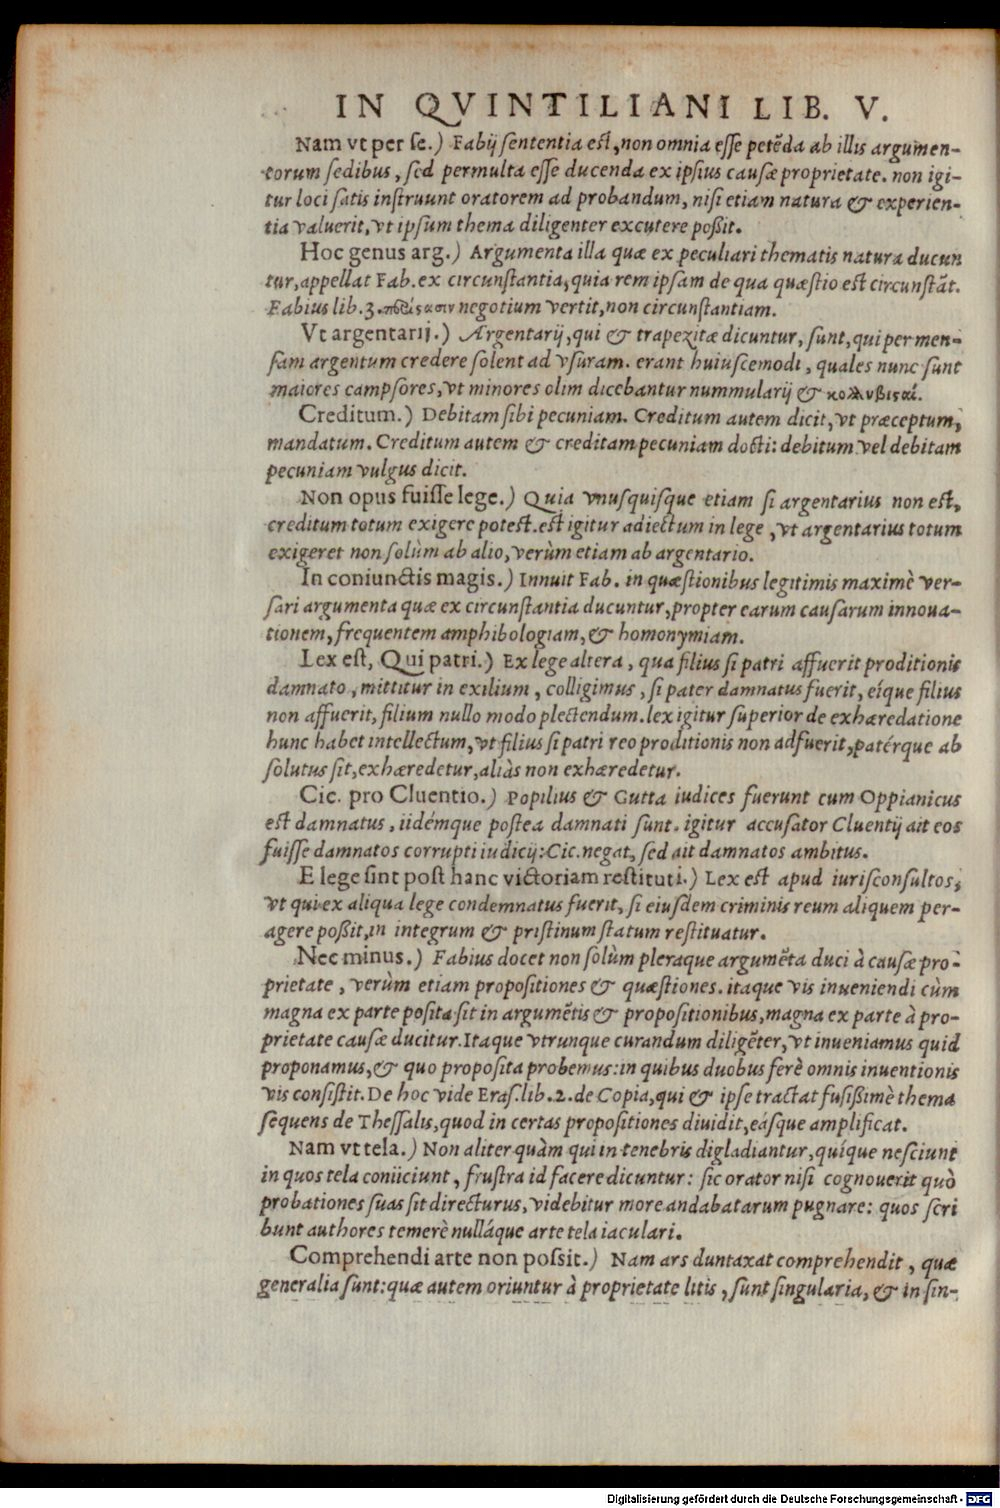 IN QVINTILIANI LIB. V.
Nam vt per se.) Fabij sententia est, non omnia esse petẽda ab illis argumen-
torum sedibus, sed permulta esse ducenda ex ipsius causæ proprietate. non igi-
tur loci satis instruunt oratorem ad probandum, nisi etiam natura & experien-
tia valuerit, vt ipsum thema diligenter excutere poßit.
Hoc genus arg.) Argumenta illa quæ ex peculiari thematis natura ducun
tur, appellat Fab. ex circunstantia, quia rem ipsam de qua quæstio est circunstãt.
Fabius lib. 3. negotium vertit, non circunstantiam.
Vt argentarij.) Argentarij, qui & trapezitæ dicuntur, sunt, qui per men-
sam argentum credere solent ad vsuram. erant huiuscemodi, quales nunc sunt
maiores campsores, vt minores olim dicebantur nummularij & κολλυβισταί.
Creditum.) Debitam sibi pecuniam. Creditum autem dicit, vt præceptum,
mandatum. Creditum autem & creditam pecuniam docti: debitum vel debitam
pecuniam vulgus dicit.
Non opus fuisse lege.) Quia vnusquisque etiam si argentarius non est,
creditum totum exigere potest. est igitur adiectum in lege, vt argentarius totum
exigeret non solùm ab alio, verùm etiam ab argentario.
In coniunctis magis.) Innuit Fab. in quæstionibus legitimis maximè ver-
sari argumenta quæ ex circunstantia ducuntur, propter earum causarum innoua-
tionem, frequentem amphibologiam, & homonymiam.
Lex est, Qui patri.) Ex lege altera, qua filius si patri affuerit proditionis
damnato, mittitur in exilium, colligimus, si pater damnatus fuerit, eíque filius
non affuerit, filium nullo modo plectendum. lex igitur superior de exhæredatione
hunc habet intellectum, vt filius si patri reo proditionis non adfuerit, patérque ab
solutus sit, exhæredetur, aliàs non exhæredetur.
Cic. pro Cluentio.) Popilius & Gutta iudices fuerunt cum Oppianicus
est damnatus, iidémque postea damnati sunt. igitur accusator Cluentij ait eos
fuisse damnatos corrupti iudicij: Cic. negat, sed ait damnatos ambitus.
E lege sint post hanc victoriam restituti.) Lex est apud iurisconsultos,
vt qui ex aliqua lege condemnatus fuerit, si eiusdem criminis reum aliquem per-
agere poßit, in integrum & pristinum statum restituatur.
Nec minus.) Fabius docet non solùm pleraque argumẽta duci à causæ pro-
prietate, verùm etiam propositiones & quæstiones. itaque vis inueniendi cùm
magna ex parte posita sit in argumẽtis & propositionibus, magna ex parte à pro-
prietate causæ ducitur. Itaque vtrunque curandum diligẽter, vt inueniamus quid
proponamus, & quo proposita probemus: in quibus duobus ferè omnis inuentionis
vis consistit. De hoc vide Eras. lib. 2. de Copia, qui & ipse tractat fusißimè thema
sequens de Thessalis, quod in certas propositiones diuidit, eásque amplificat.
Nam vt tela.) Non aliter quàm qui in tenebris digladiantur, quíque nesciunt
in quos tela coniiciunt, frustra id facere dicuntur: sic orator nisi cognouerit quò
probationes suas sit directurus, videbitur more andabatarum pugnare: quos scri
bunt authores temerè nulláque arte tela iaculari.
Comprehendi arte non possit.) Nam ars duntaxat comprehendit, quæ
generalia sunt: quæ autem oriuntur à proprietate litis, sunt singularia, & in sin-
Digitalisierung gefördert durch die Deutsche Forschungsgemeinschaft - DFG